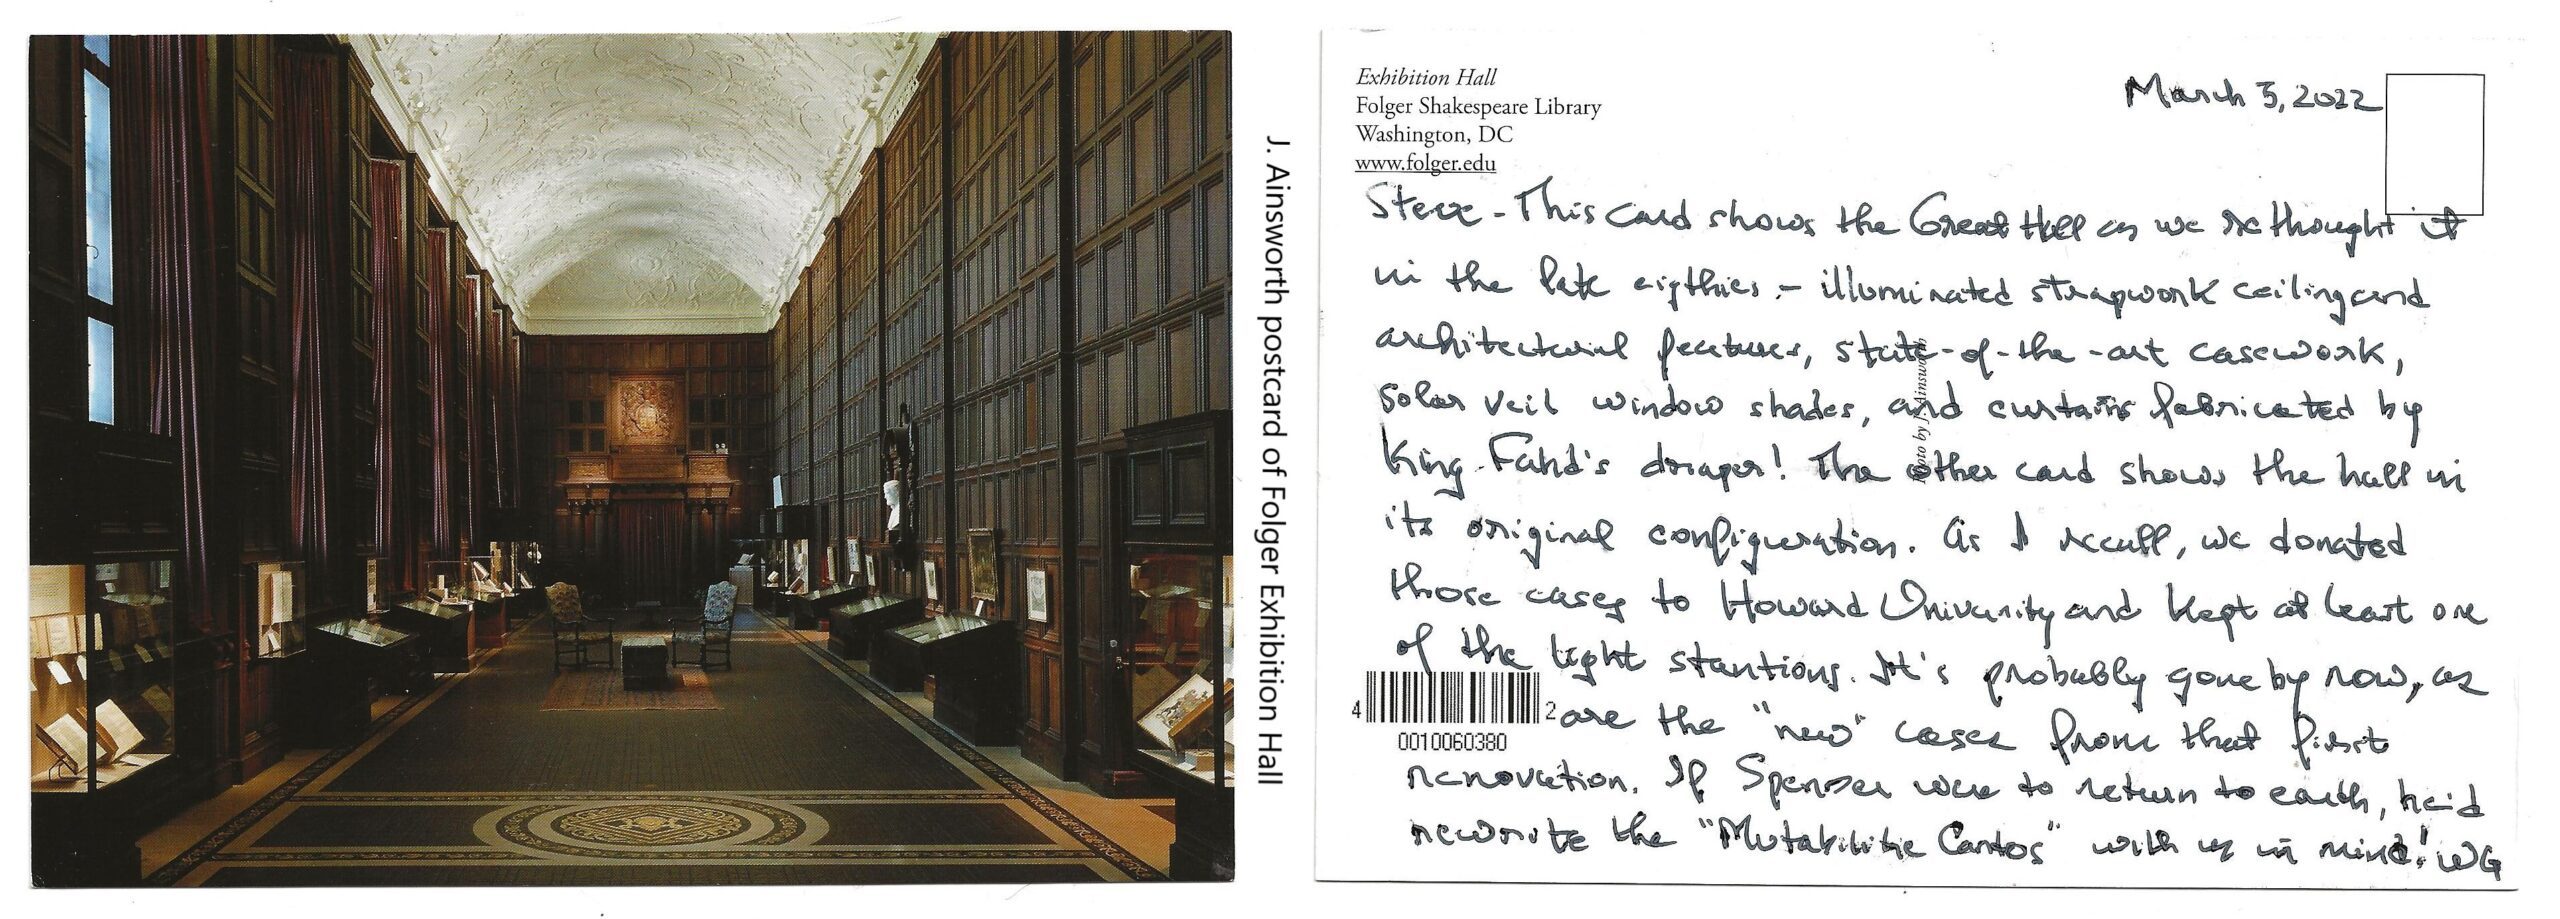 J. Ainsworth postcard of Folger Exhibition Hall
Exhibition Hall
Folger Shakespeare Library
Washington, DC
www.folger.edu
March 3, 2022
Steve - This card shows the Great Hall as we rethought it
in the late eigthies - illuminated strapwork ceiling and
architectural features, state-of-the-art casework,
solar veil window shades, and curtains fabricated by
King Fahd's draper! The other card shows the hall in
its original configuration. As I recall, we donated
those cases to Howard University and kept at least one
of the light stantions. It's probably gone by now, as
are the "new" cases from that first
renovation. If Spenser were to return to earth, he'd
rewrite the "Mutabilitie Cantos" with us in mind! WG
Photo by J. Ainsworth
4 2
0010060380